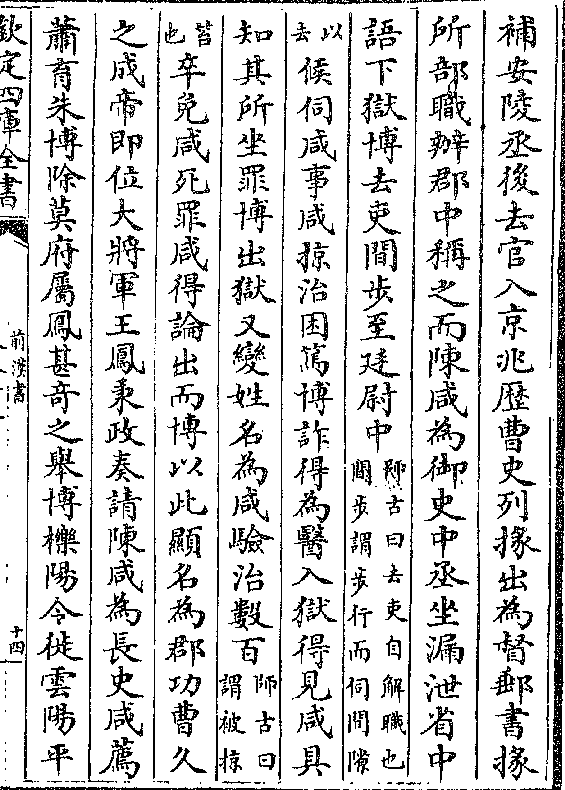 補安陵丞後去官入京兆歴曹史列掾出為督郵書掾
所部職辦郡中稱之而陳咸為御史中丞坐漏泄省中
語下獄博去吏間步至廷尉中師古曰去吏自解職也間步謂步行而伺間隙
以去候伺咸事咸掠治困篤博詐得為醫入獄得見咸具
知其所坐罪博出獄又變姓名為咸驗治數百師古曰謂被掠
笞也卒免咸死罪咸得論出而博以此顯名為郡功曹久
之成帝即位大將軍王鳳秉政奏請陳咸為長史咸薦
蕭育朱博除莫府屬鳳甚奇之舉博櫟陽令徙雲陽平
欽定四庫全書
前漢書
十四